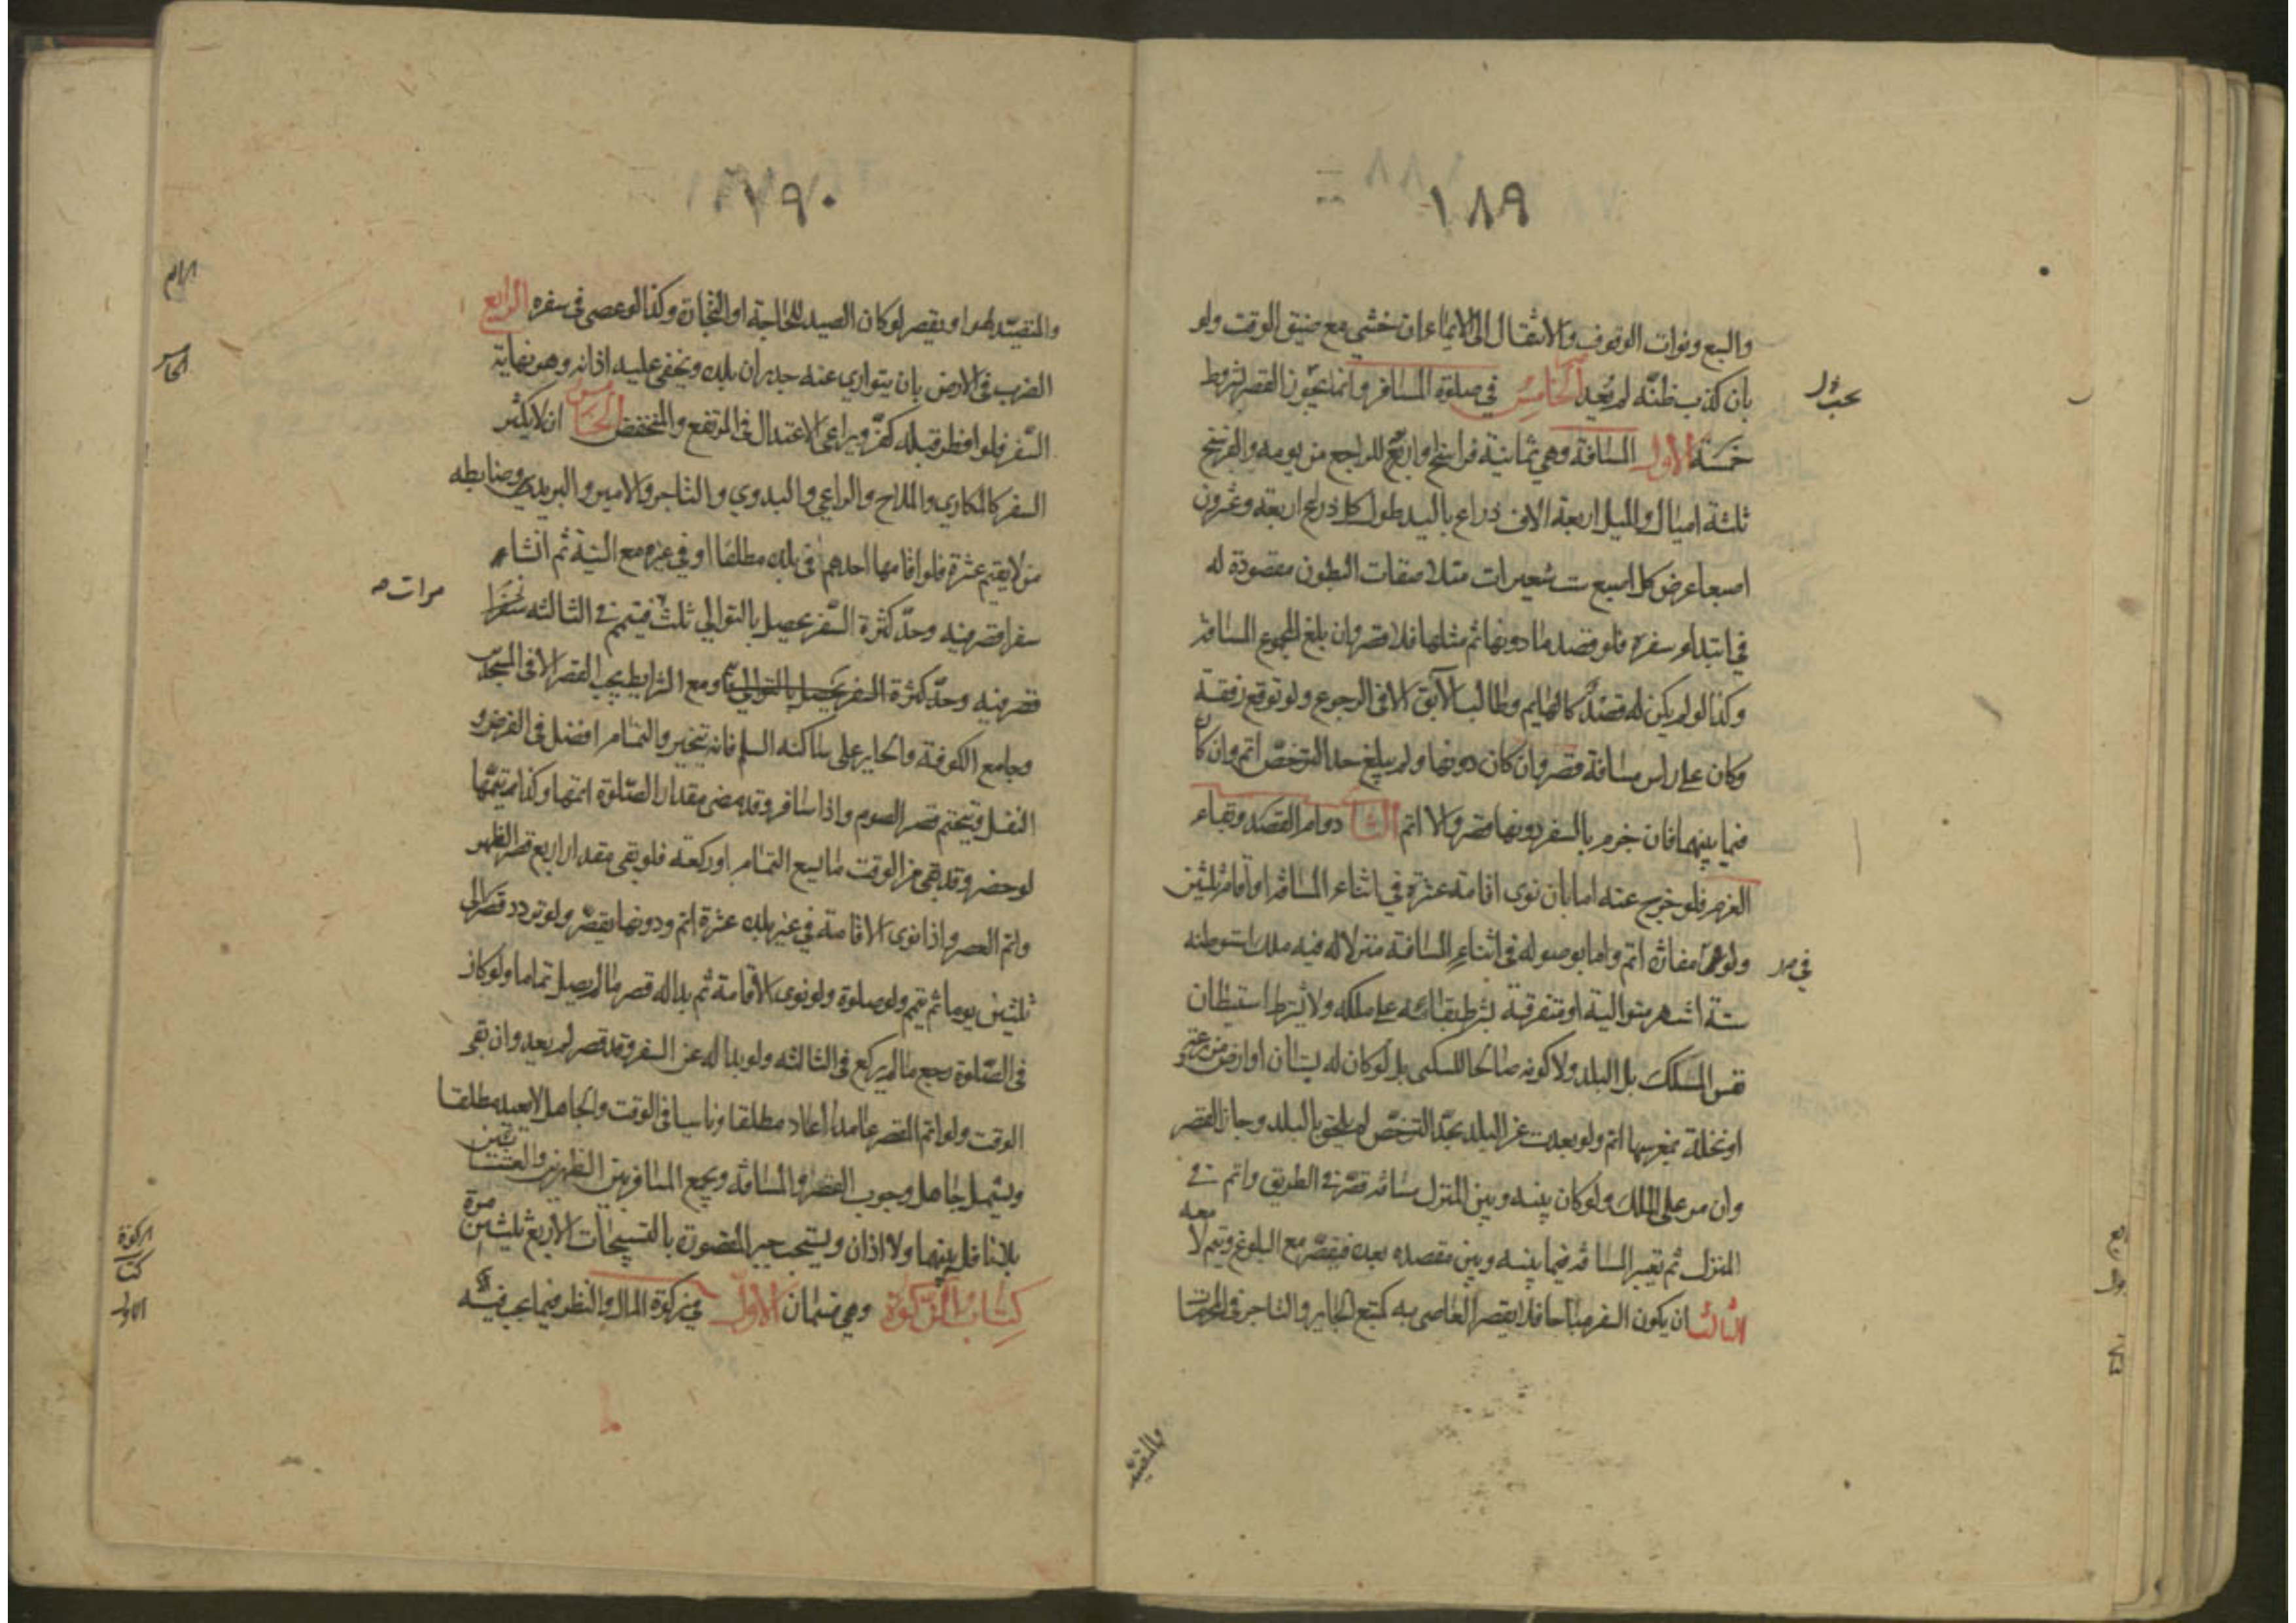 ١٨٩
والسبع وفوات الوقوف والانتقال الى الايماء ان خشي مع ضيق الوقت ولو
بان كذب ظنه لم يعد الخامس في صلوة المسافر وانما يجوز القصر بشروط
خمسة الاول المسافة وهي ثمانية فراسخ او اربع للراجع من يومه والفرسخ
ثلثة اميال والميل اربعة الاف ذراع باليد طول كل ذراع اربعة وعشرون
اصبعا عرض كل اصبع ست شعيرات متلاصقات البطون مقصودة له
في ابتداء سفره فلو قصد ما دونها ثم مثلها فلا قصر وان بلغ المجموع المسافة
وكذا لو لم يكن له قصد كالهايم وطالب الآبق الا في الرجوع ولو توقع رفقة
وكان على راس مسافة قصر وان كان دونها ولم يبلغ حد الترخص اتم وان كان
فيما بينهما فان جزم بالسفر دونها قصر والا اتم الثا دوام القصد وبقاء
العزم فلو خرج عنه اما بان نوى اقامة عشرة في اثناء المسافة او اقام ثلثين
ولو مفازة اتم واما بوصوله في اثناء المسافة منزلا له فيه ملك استوطنه
في صد
ستة اشهر متوالية او متفرقة بشرط بقائه على ملكه ولا يشترط استيطان
نفس الملك بل البلد ولا كونه صالحا للسكنى بل لو كان له بستان او ارض
او نخلة بمغرسها اتم ولو بعدت عن البلد بحد الترخص لم يلحق بالبلد وجاز القصر
وان مر على الملك ولو كان بينه وبين المنزل مسافة قصر في الطريق واتم في
المنزل ثم تعتبر المسافة فيما بينه وبين مقصده بعده فيقصر مع البلوغ ويتم لا معه
الثالث ان يكون السفر مباحا فلا يقصر العاصي به كمتبع الجاير والتاجر في المحرمات
والمتصيد
١٩٠
والمتصيد لهوا ويقصر لو كان الصيد للحاجة او التجارة وكذا لو عصى في سفره الرابع
الضرب في الارض بان يتوارى عنه جدران بلده ويخفى عليه اذانه وهو نهاية
السفر فلو افطر قبله كفر ويراعى الاعتدال في المرتفع والمنخفض الخامس ان لا يكثر
السفر كالمكاري والملاح والراعي والبدوي والتاجر والامير والبريدي وضابطه
من لا يقيم عشرة فلو اقامها احدهم في بلده مطلقا او في غيره مع النية ثم انشاء
سفرا قصر فيه وحد كثرة السفر يحصل بالتوالي ثلث فيتم في الثالثه سفرا
مرات صه
قصر فيه وحد كثرة السفر يحصل بالتوالي ومع الشرايط يجب القصر الا في المسجدين
وجامع الكوفة والحاير على ساكنه السلم فانه يتخير والتمام افضل في الفرض و
النفل ويتحتم قصر الصوم واذا سافر وقد مضى مقدار الصلوة اتمها وكذا يتمها
لو حضر وقد بقى من الوقت ما يسع التمام او ركعة فلو بقى مقدار اربع قصر الظهر
واتم العصر واذا نوى الاقامة في غير بلده عشرة اتم ودونها يقصر ولو تردد قصر الى
ثلثين يوما ثم يتم ولو صلوة ولو نوى الاقامة ثم بدا له قصر ما لم يصل تماما ولو كان
في الصلوة رجع ما لم يركع في الثالثه ولو بدا له عن السفر وقد قصر لم يعد وان بقى
الوقت ولو اتم المقصر عامدا اعاد مطلقا وناسيا في الوقت والجاهل لا يعيد مطلقا
ويشمل جاهل وجوب القصر والمسافة ويجمع المسافر بين الظهرين والعشائين
بلا نافل بينهما ولا اذان ويستحب جبر المقصورة بالتسبيحات الاربع ثلثين مرة
كتاب الزكوة وهي قسمان الاول في زكوة المال والنظر فيما يجب فيه
الرابع
الخامس
الزكوة
كتاب
الاول